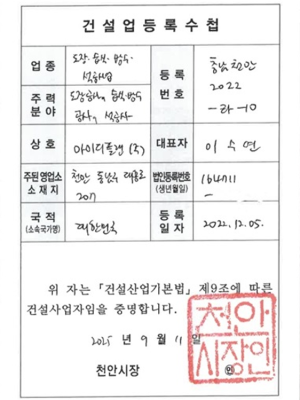 건설업등록수첩
업종
도장·습식·방수·
석공사업
등록
번호
충남 천안
2022
-라-10
주력
분야
도장공사, 습식·방수
공사, 석공사
상호
아이디플랜(주)
대표자
이수연
주된영업소
소재지
천안 동남구
2017
법인등록번호
(생년월일)
164711
-
국적
(소속국가명)
대한민국
등록
일자
2022.12.05.
위 자는「건설산업기본법」제9조에 따른
건설사업자임을 증명합니다.
2025년 9월 11일
천안시장
인
천안
시장인